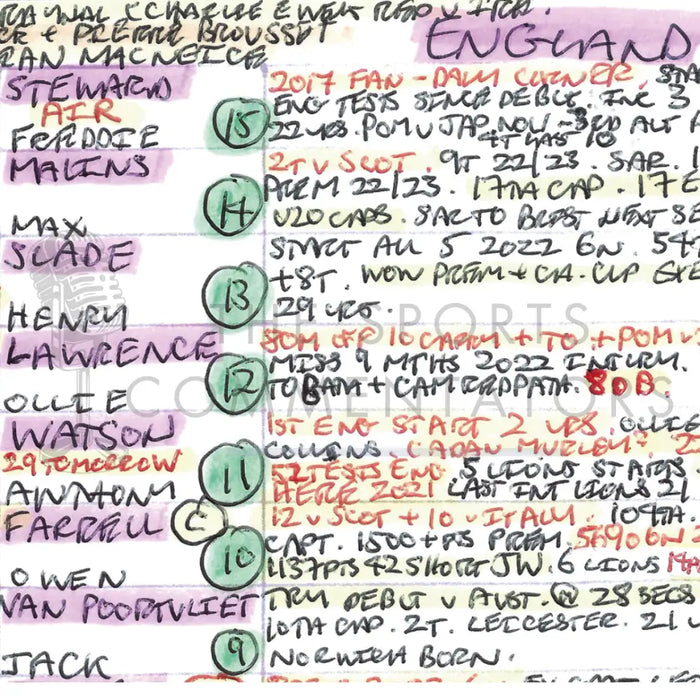 + PIERRE BROUSSET
RAN MACNEICE
ENGLAND
STEWARD
AIR
FREDDIE
15
2017 FAN - DALY CORNER. STA
ENG TESTS SINCE DEBUT. INC 3
22 YRS. POM V JAP NOV - 3RD ALT F
MALINS
MAX
14
2T V SCOT. 9T 22/23. SAR. 1
PREM 22/23. 17TH CAP. 17 E
U20 CAPS. SAR TO BRIST NEXT SE
SLADE
HENRY
13
START ALL 5 2022 6N. 54T
+8T. WON PREM + CH. CUP EXE
29 YRS.
LAWRENCE
OLLIE
12
80M OFF 10 CARRY + TO + POM V
MISS 9 MTHS 2022 INJURY.
TO BATH + CAM REDPATH. 80B.
WATSON
29 TOMORROW
ANTHONY
11
1ST ENG START 2 YRS. OLLIE
COLLINS. CADAN MURLEY? 2
52 TESTS ENG 5 LIONS STARTS
HERE 2021 LAST INT LIONS 21
FARRELL
C
OWEN
10
12 V SCOT + 10 V ITALY. 109TH.
CAPT. 1500 + PTS PREM. 5690 6N 2
1137PTS 42 SHORT JW. 6 LIONS 14A
VAN POORTVLIET
JACK
9
TRY DEBUT V AUST. @ 28 SECS
10TH CAP. 2T. LEICESTER. 21 Y
NORWICH BORN.
THE SPORTS
COMMENTATORS